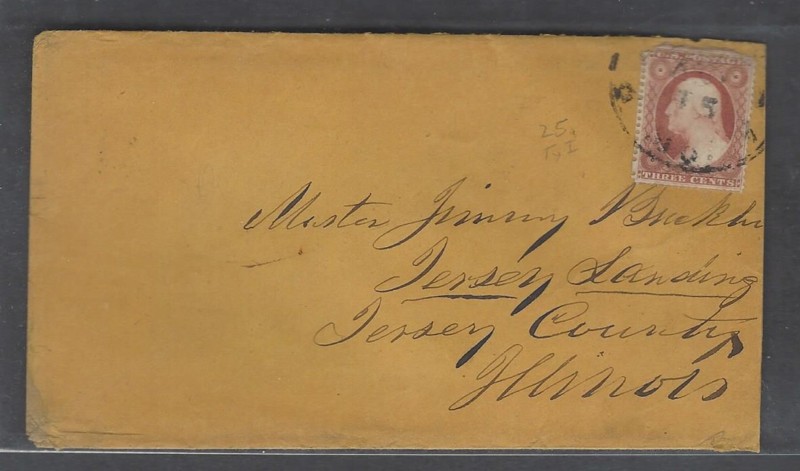 THREE CENTS
15
25.
Master Jimmy
Jersey Landing
Jersey County
Illinois